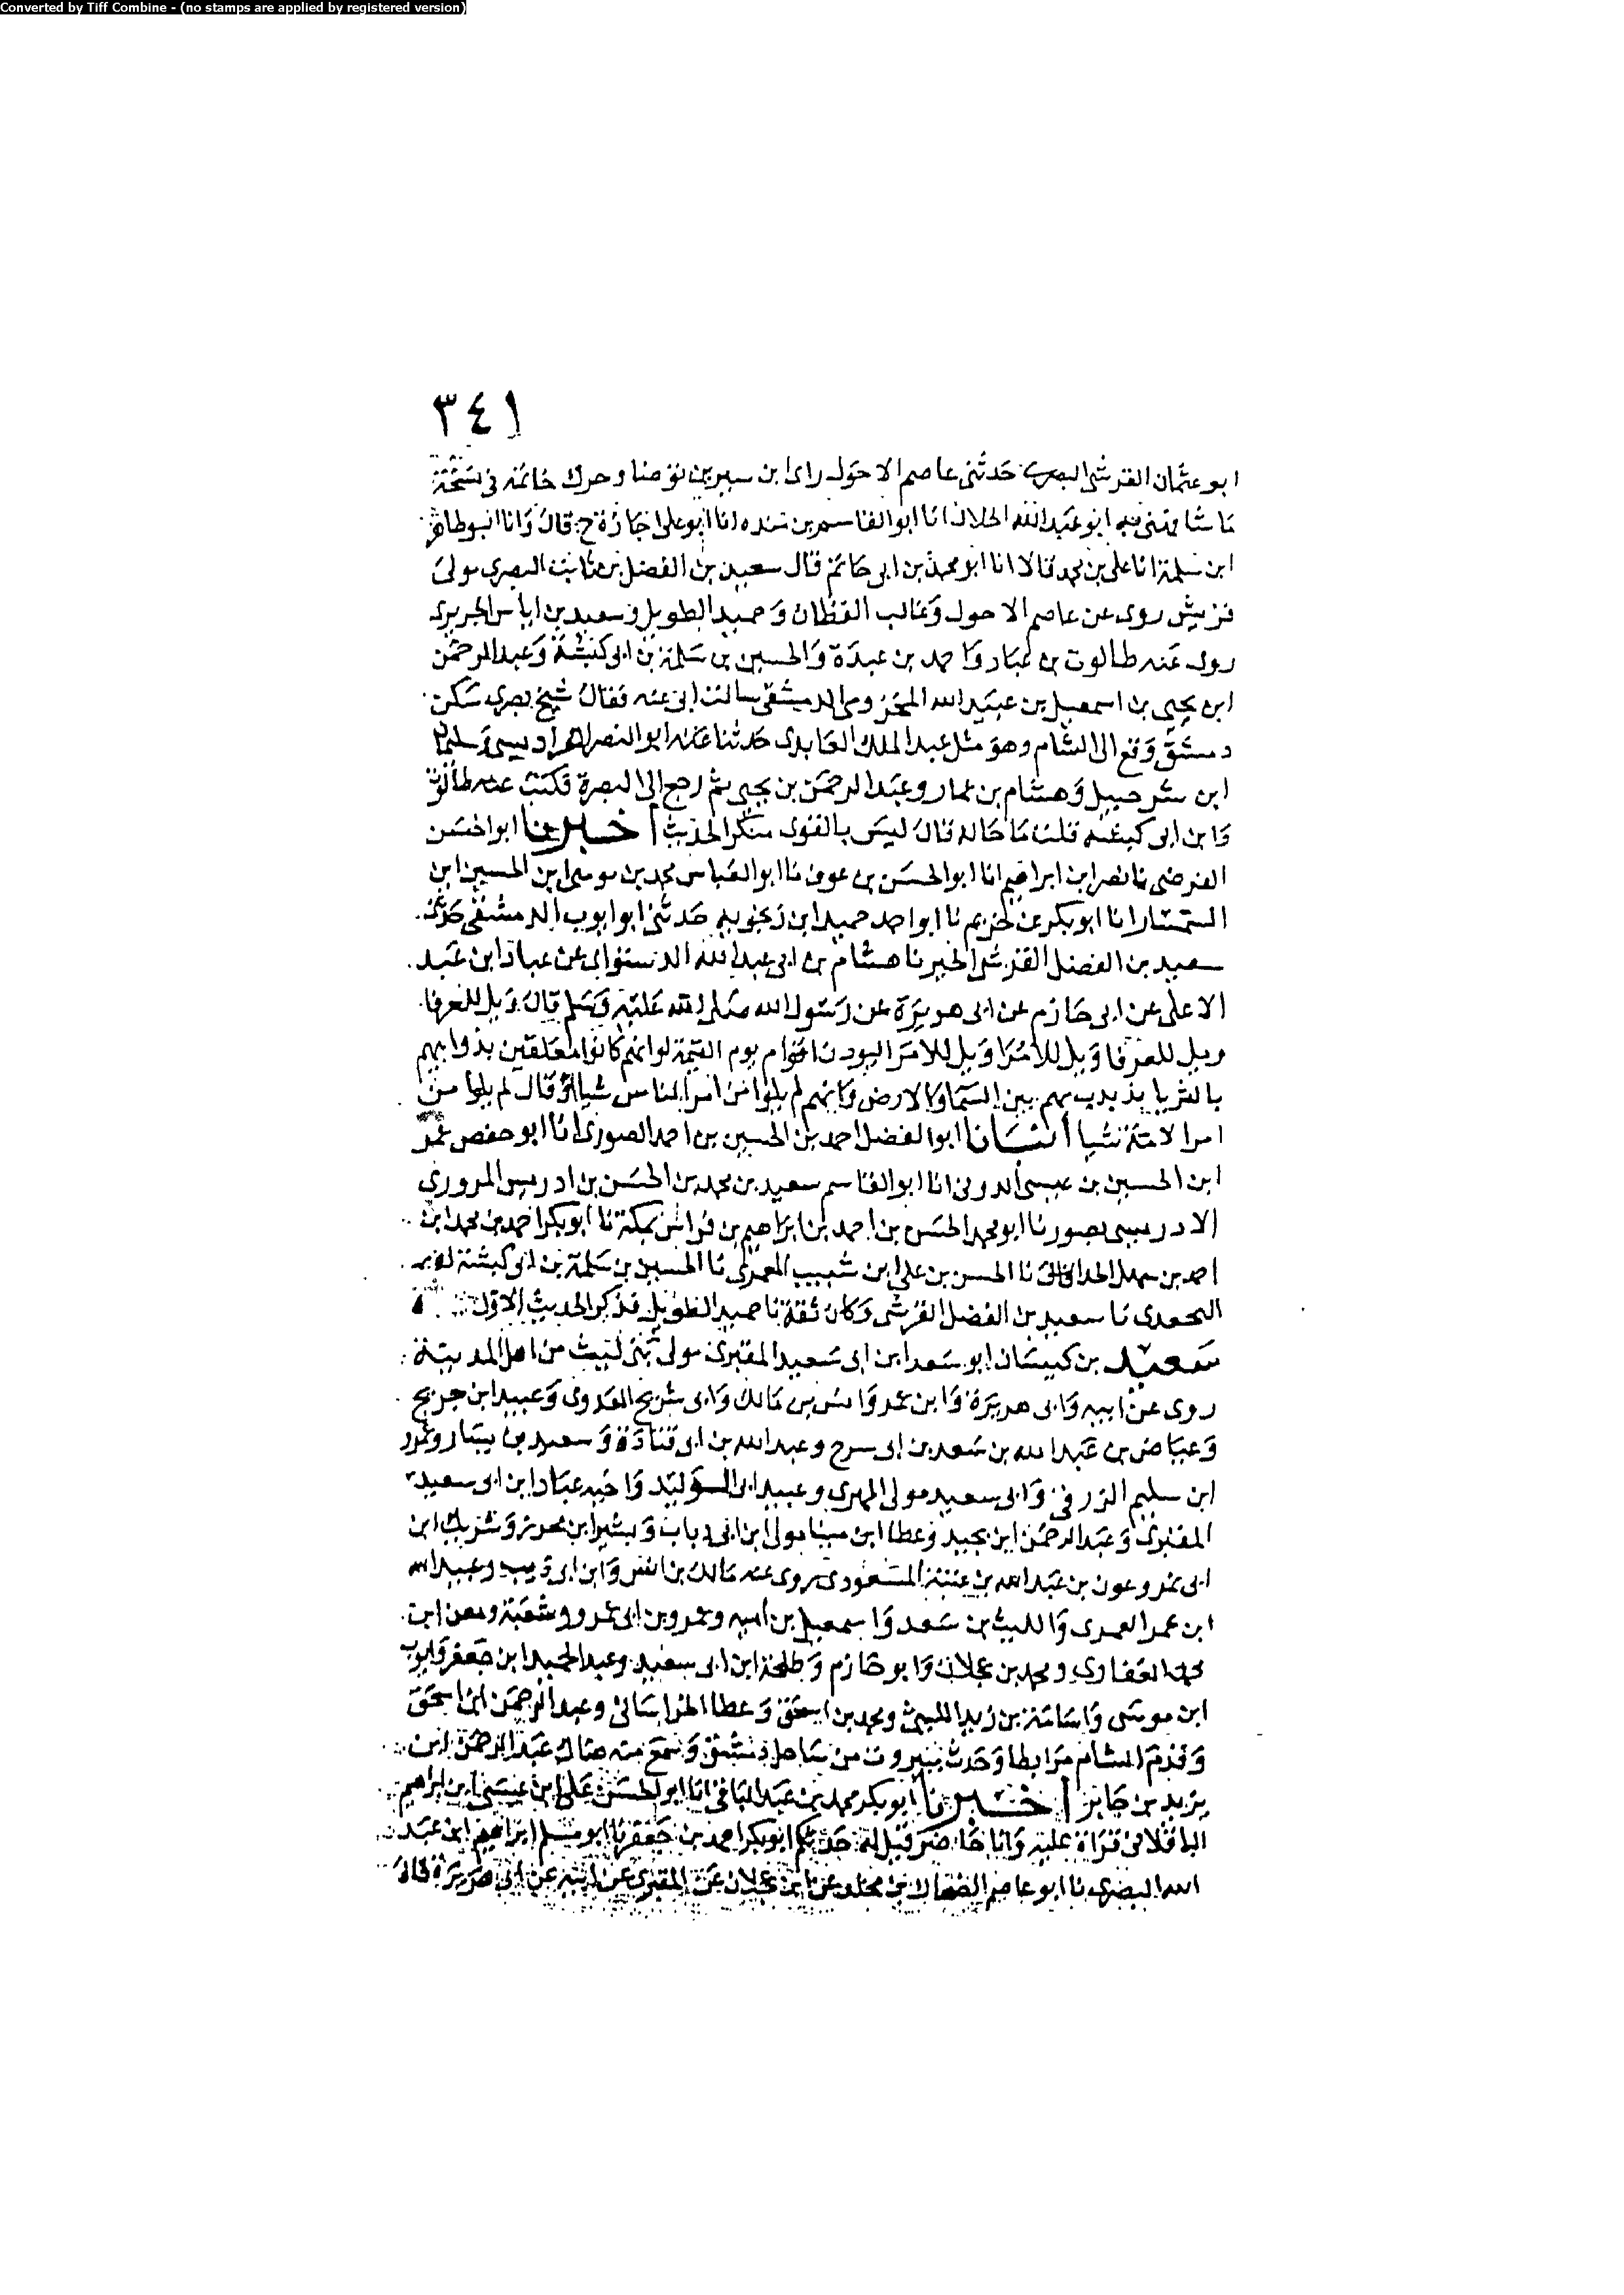 Converted by Tiff Combine - (no stamps are applied by registered version)
٣٤١
ابو عثمان القرشى البصرى حدثنى عاصم الاحول راى ابن سيرين توضا وحرك خاتمه فى نسخة
ما شافهنى به ابو عبد الله الخلال انا ابو القاسم بن منده انا ابو على اجازة ح قال وانا ابو طاهر
ابن سلمة انا على بن محمد قالا انا ابو محمد بن ابى حاتم قال سعيد بن الفضل بن ثابت البصرى مولى
قريش روى عن عاصم الاحول وغالب القطان وحميد الطويل وسعيد بن اياس الجريرى
روى عنه طالوت بن عباد واحمد بن عبدة والحسين بن سلمة بن ابى كبشة وعبد الرحمن
ابن يحيى بن اسمعيل بن عبيد الله المخزومى الدمشقى سالت ابى عنه فقال شيخ بصرى سكن
دمشق وقع الى الشام وهو مثل عبد الملك العابدى حدثنا عنه ابو النضر الفراديسى وسليمان
ابن شرحبيل وهشام بن عمار وعبد الرحمن بن يحيى ثم رجع الى البصرة فكتب عنه طالوت
وابن ابى كبشه قلت ما حاله قال ليس بالقوى منكر الحديث اخبرنا ابو الحسن
الفرضى نا نصر ابن ابراهيم انا ابو الحسن بن عوف نا ابو العباس محمد بن موسى ابن الحسين ابن
السمسار انا ابو بكر بن خريم نا ابو احمد حميد ابن زنجويه حدثنى ابو ايوب الدمشقى حدثنى
سعيد بن الفضل القرشى اخبرنا هشام بن ابى عبد الله الدستوانى عن عباد ابن عبد
الاعلى عن ابى حازم عن ابى هريرة عن رسول الله صلى الله عليه وسلم قال ويل للعرفا
ويل للعرفا ويل للامرا ويل للامرا ليودن اقوام يوم القيمة لو انهم كانوا معلقين بذوايبهم
بالثريا يذبذب بهم بين السما والارض وانهم لم يلوا من امر الناس شيا او قال لم يلوا من
امر الامة شيا انبانا ابو الفضل احمد بن الحسين بن احمد الصورى انا ابو حفص عمر
ابن الحسين بن عيسى الدونى انا ابو القاسم سعيد بن محمد بن الحسن بن ادريس المروزى
الادريسى بصور نا ابو محمد الحسن بن احمد بن ابراهيم بن فراس بمكة نا ابو بكر احمد بن محمد ابن
احمد بن سهل نا الحسن بن على ابن شبيب المعمرى نا الحسين بن سلمة بن ابى كبشة
اليحمدى نا سعيد بن الفضل القرشى وكان ثقة نا حميد الطويل فذكر الحديث الاول
سعيد بن كيسان ابو سعد ابن ابى سعيد المقبرى مولى بنى ليث من اهل المدينة
روى عن ابيه وابى هريرة وابن عمر وانس بن مالك وابى شريح العدوى وعبيد ابن جريج
وعياض بن عبد الله بن سعد بن ابى سرح وعبد الله بن ابى قتادة وسعيد بن يسار وعمرو
ابن سليم الزرقى وابى سعيد مولى المهرى وعبيد ابى الوليد واخيه عباد ابن ابى سعيد
المقبرى وعبد الرحمن ابن بجيد وعطا ابن مينا مولى ابن ابى ذباب وبشير ابن محرز وشريك ابن
ابى نمر وعون بن عبد الله بن عتبة المسعودى روى عنه مالك بن انس وابن ابى ذيب وعبيد الله
ابن عمر العمرى والليث بن سعد واسمعيل بن اميه وعمرو بن ابى عمرو وشعبة ومعن ابن
محمد الغفارى ومحمد بن عجلان وابو حازم وطلحة ابن ابى سعيد وعبد الحميد ابن جعفر وايوب
ابن موسى واسامة بن زيد الليثى ومحمد بن اسحق وعطا الخراسانى وعبد الرحمن ابن اسحق
وقدم الشام مرابطا وحدث ببيروت من ساحل دمشق وسمع منه هناك عبد الرحمن ابن
يزيد بن جابر اخبرنا ابو بكر محمد بن عبد الباقى انا ابو الحسن على ابن عيسى ابن ابراهيم
الباقلانى قراة عليه وانا حاضر قيل له حدثكم ابو بكر احمد بن جعفر نا ابو مسلم ابراهيم ابن عبد
الله البصرى نا ابو عاصم الضحاك بن مخلد عن ابن عجلان عن المقبرى عن ابيه عن ابى هريرة قال